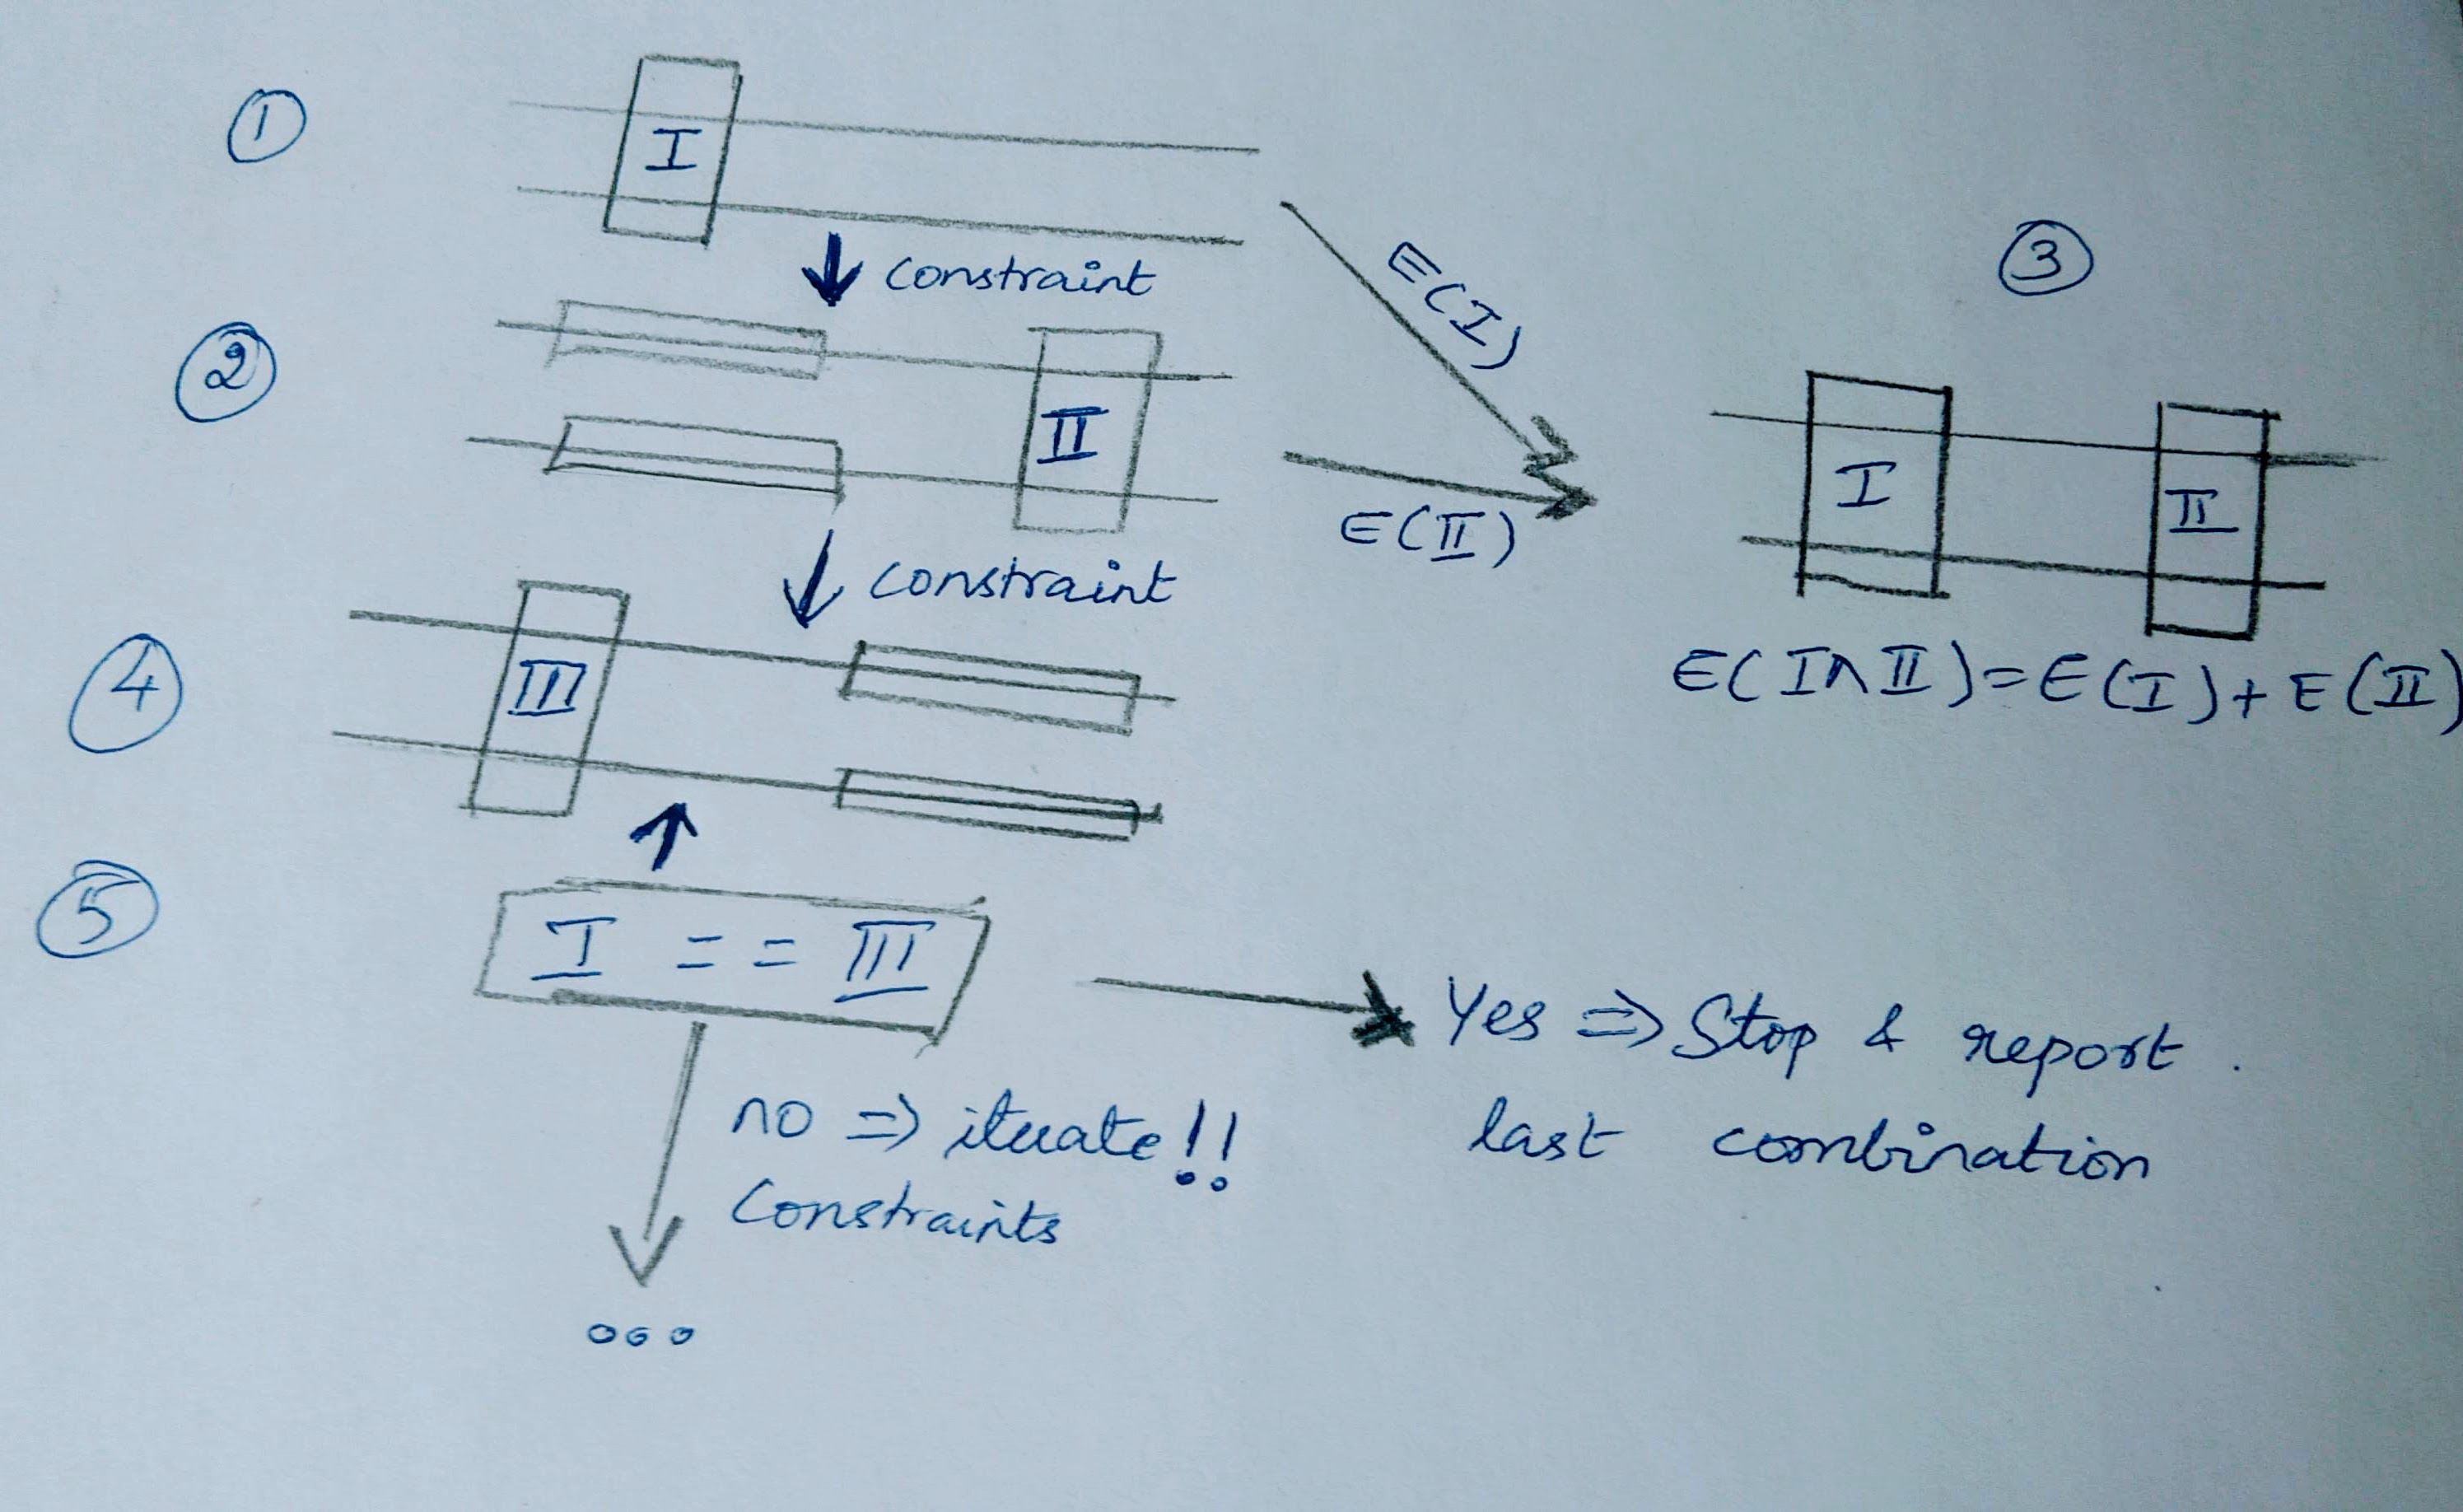 1
I
constraint
E(I)
3
2
II
E(II)
I
II
constraint
E(I∧II)=E(I)+E(II)
4
III
5
I == III
Yes ⇒ Stop & report.
last combination
no ⇒ iterate!!
Constraints
...